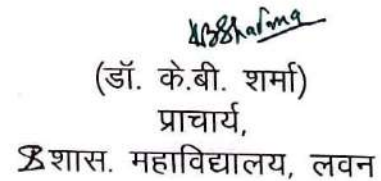 KBSharma
(डॉ. के.बी. शर्मा)
प्राचार्य,
शास. महाविद्यालय, लवन